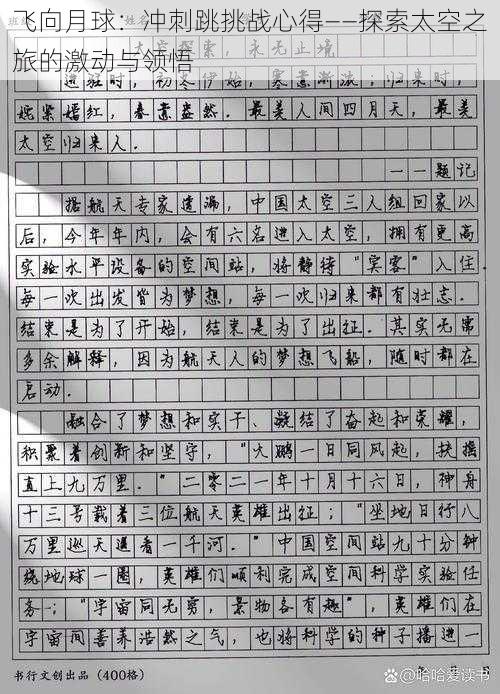 飞向月球：冲刺跳挑战心得——探索太空之
旅的激动与领悟
太空探索，永无止境
进驻时，初冬伊始，寒意渐浓；归来时，
姹紫嫣红，春意盎然。最美人间四月天，最美
太空归来人.
——题记
据航天专家透漏，中国太空三人组回家以
后，今年年内，会有六名进入太空，拥有更高
实验水平设备的空间站，将静待“宾客”入住.
每一次出发皆为梦想，每一次归来都有壮志.
结束是为了开始，结束是为了出征。其实无需
多余解释，因为航天人的梦想飞船，随时都在
启动.
融合了梦想和实干、凝结了奋起和荣耀，
积聚着创新和坚守，“大鹏一日同风起，扶摇
直上九万里.”二零二一年十月十六日，神舟
十三号载着三位航天英雄出征；“坐地日行八
万里巡天遥看一千河.”中国空间站九十分钟
绕地球一圈，英雄们顺利完成空间科学实验任
务；“宇宙同无穷，景物各有趣”，英雄们在
宇宙间善养浩然之气，也将科学的种子播进一
书行文创出品（400格）
@哈哈爱读书